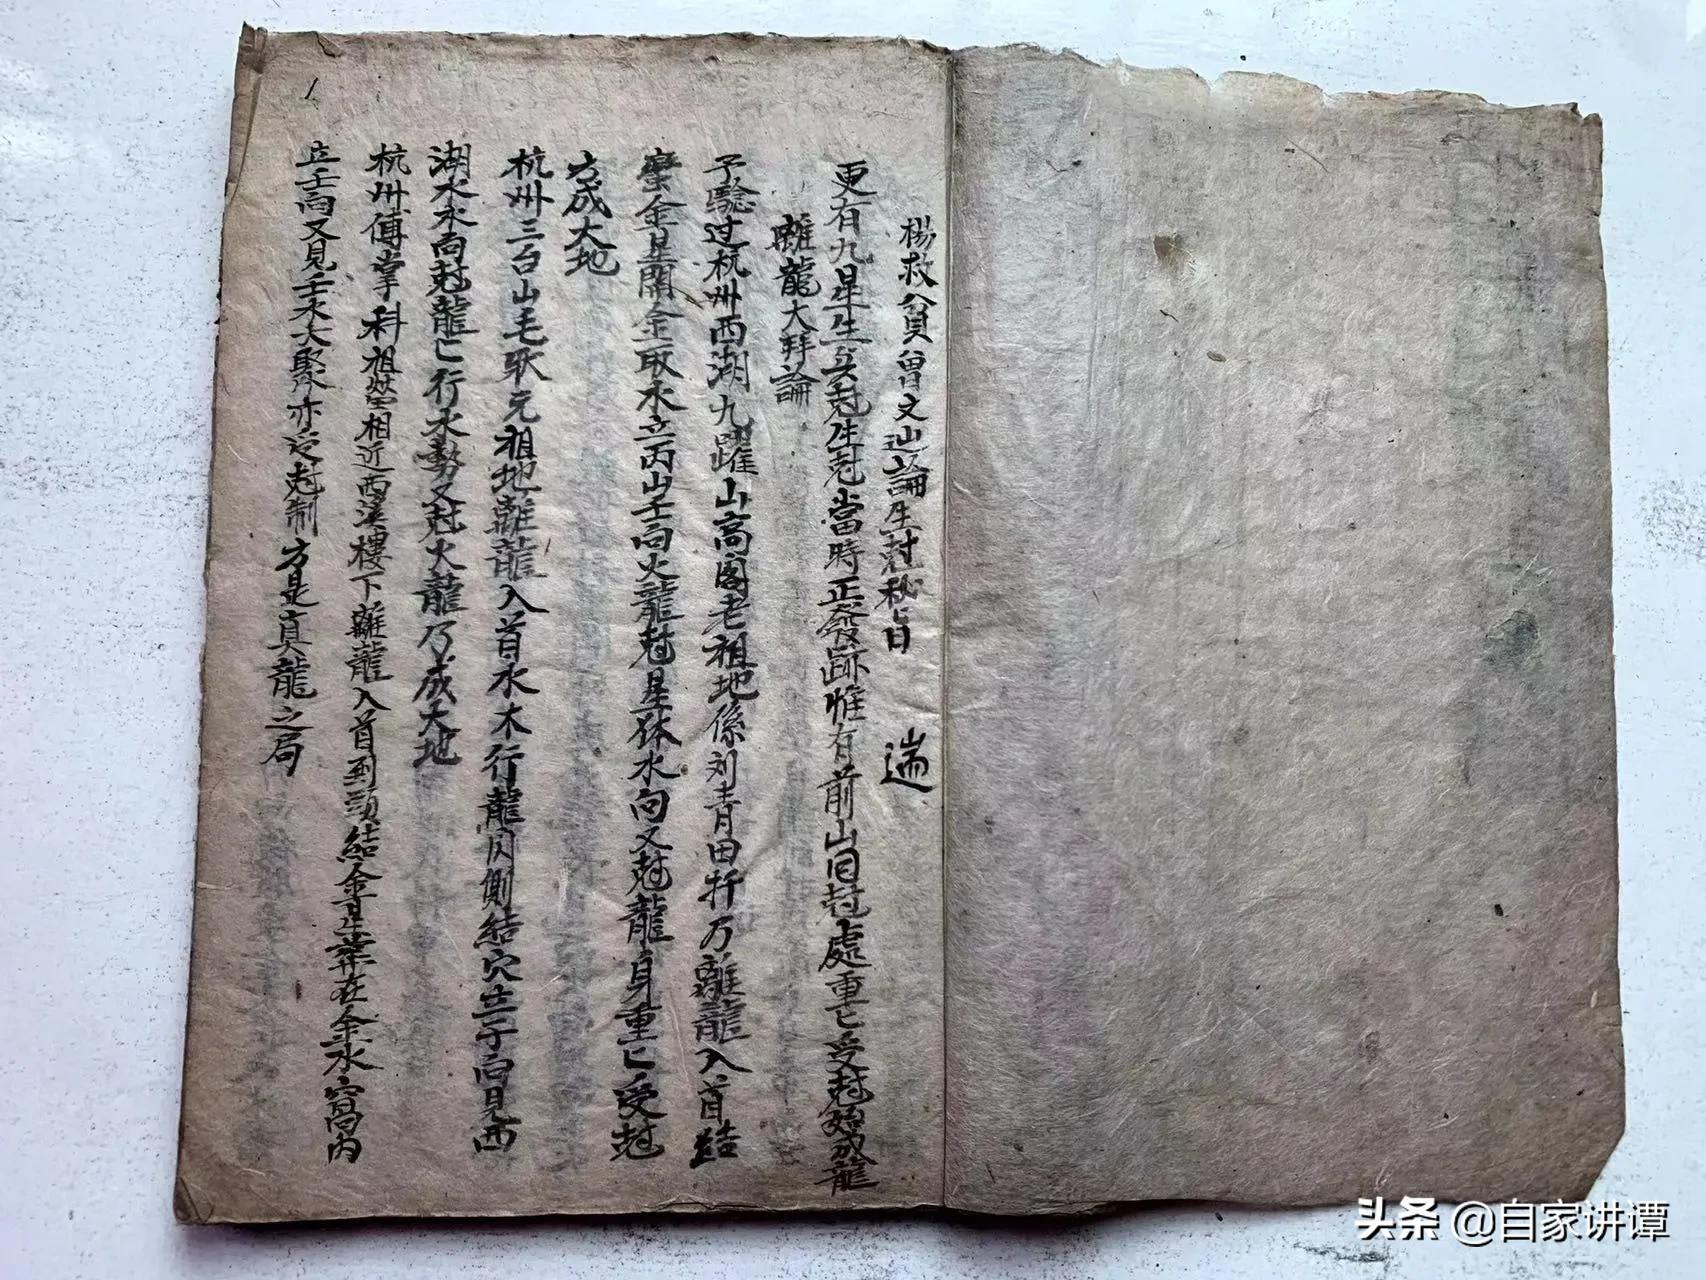 楊救貧曾文辿論生尅秘旨　遄
更有九星生與尅生尅當時正發跡惟有前山囘尅處重已受尅始成龍
離龍大拜論
予驗过杭州西湖九躍山高閣老祖地係刘青田扦乃離龍入首結
金星開金取水立丙山壬向火龍尅星体水向又尅龍身重已受尅
方成大地
杭州三台山毛耿元祖地離龍入首水木行龍閃側結穴立子向見西
湖水水向尅龍已行水勢又尅火龍乃成大地
杭州傅掌科祖塋相近西溪樓下離龍入首到頭結金星葬在金水窩内
立壬向又見壬水大聚亦受尅制方是真龍之局
头条 @自家讲谭